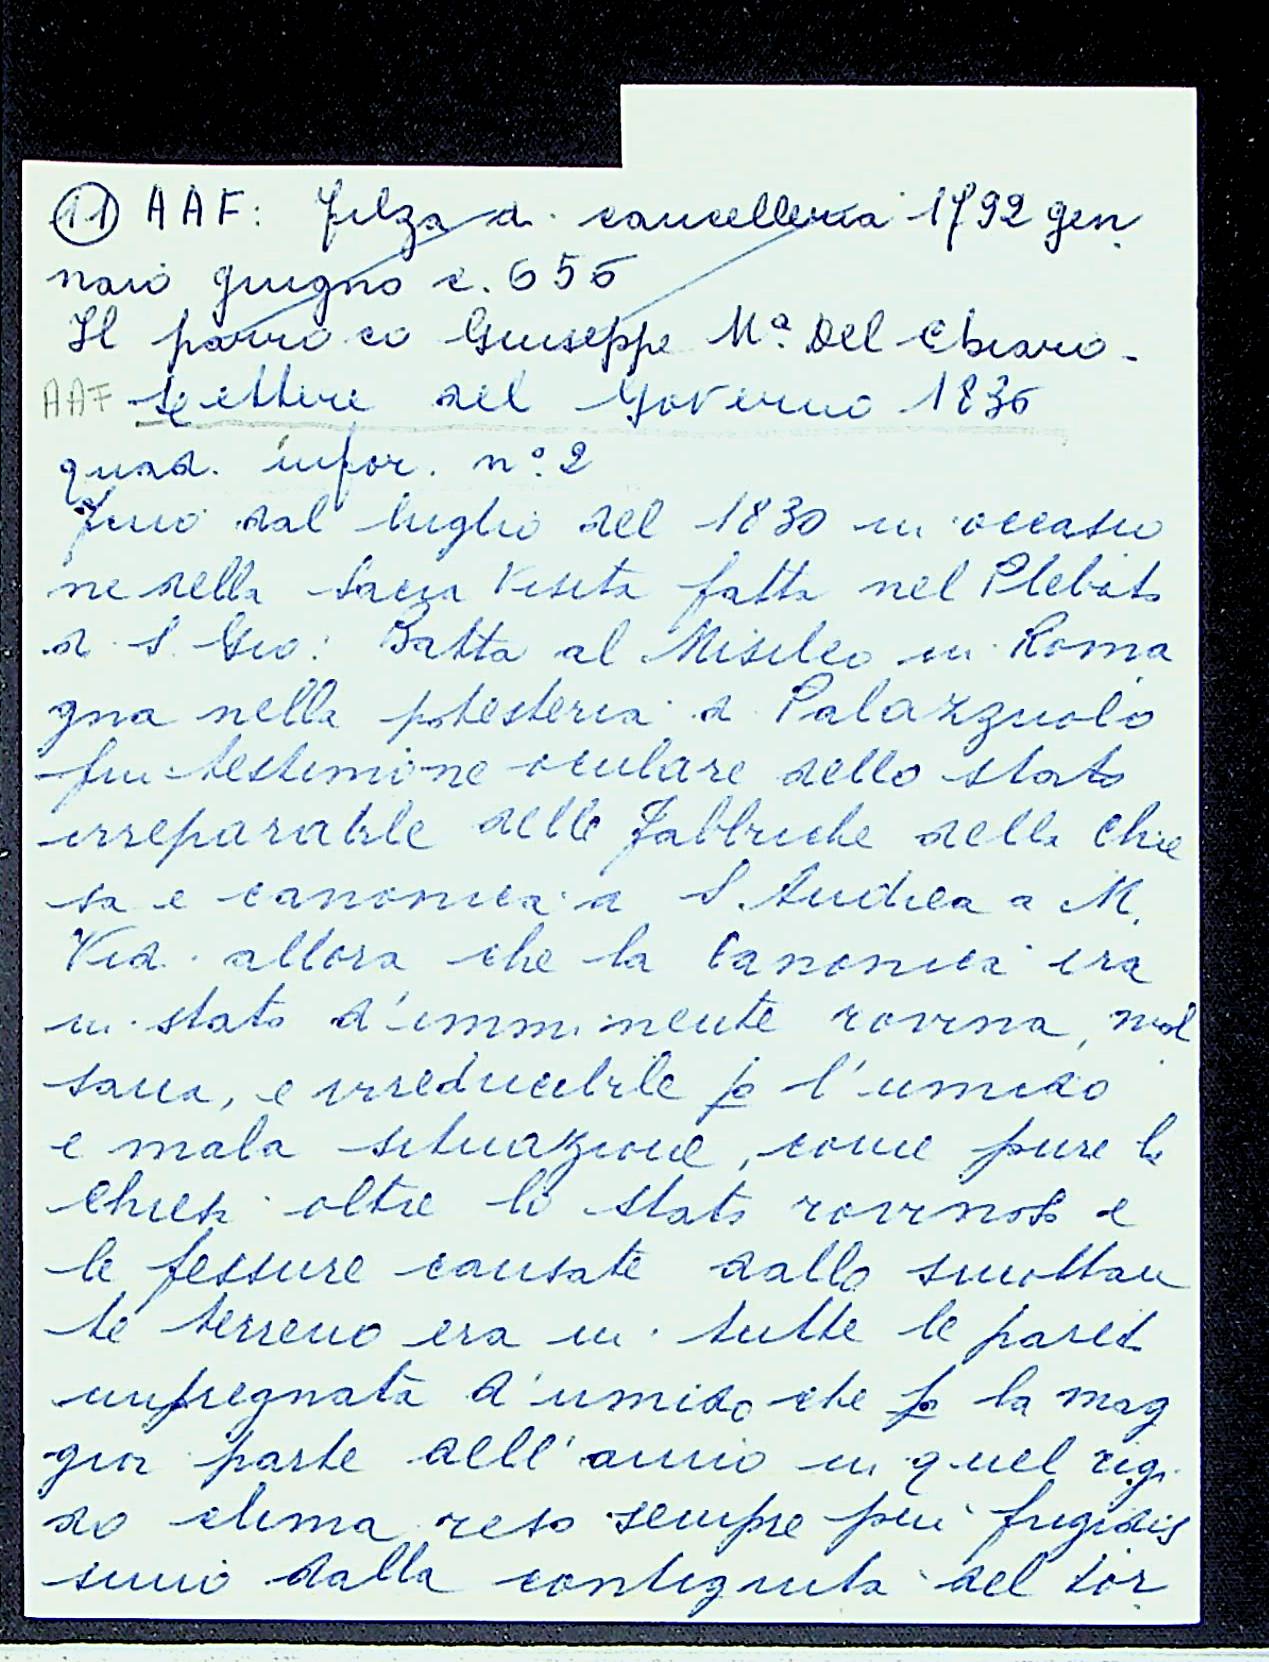 11 AAF: filza di cancelleria 1792 gen
naio giugno c. 656
Il parroco Giuseppe Mª. Del Chiaro.
AAF Lettere del Governo 1836
quad. infor. n°. 2
Fino dal luglio del 1830 in occasio
ne della Sacra Visita fatta nel Plebato
di S. Gio: Batta al Misileo in Roma
gna nella potesteria di Palazzuolo
fui testimone oculare dello stato
irreparabile delle fabbriche della Chie
sa e canonica di S. Andrea a M.
Vid. allora che la Canonica era
in stato d'imminente rovina, mal
sana, e irreducibile p l'umido
e mala situazione, come pure la
Chiesa oltre lo stato rovinoso e
le fessure causate dallo smottan
te terreno era in tutte le pareti
impregnata d'umido che p la mag
gior parte dell'anno in quel rigi
do clima reso sempre più frigidis
simo dalla contiguità del tor